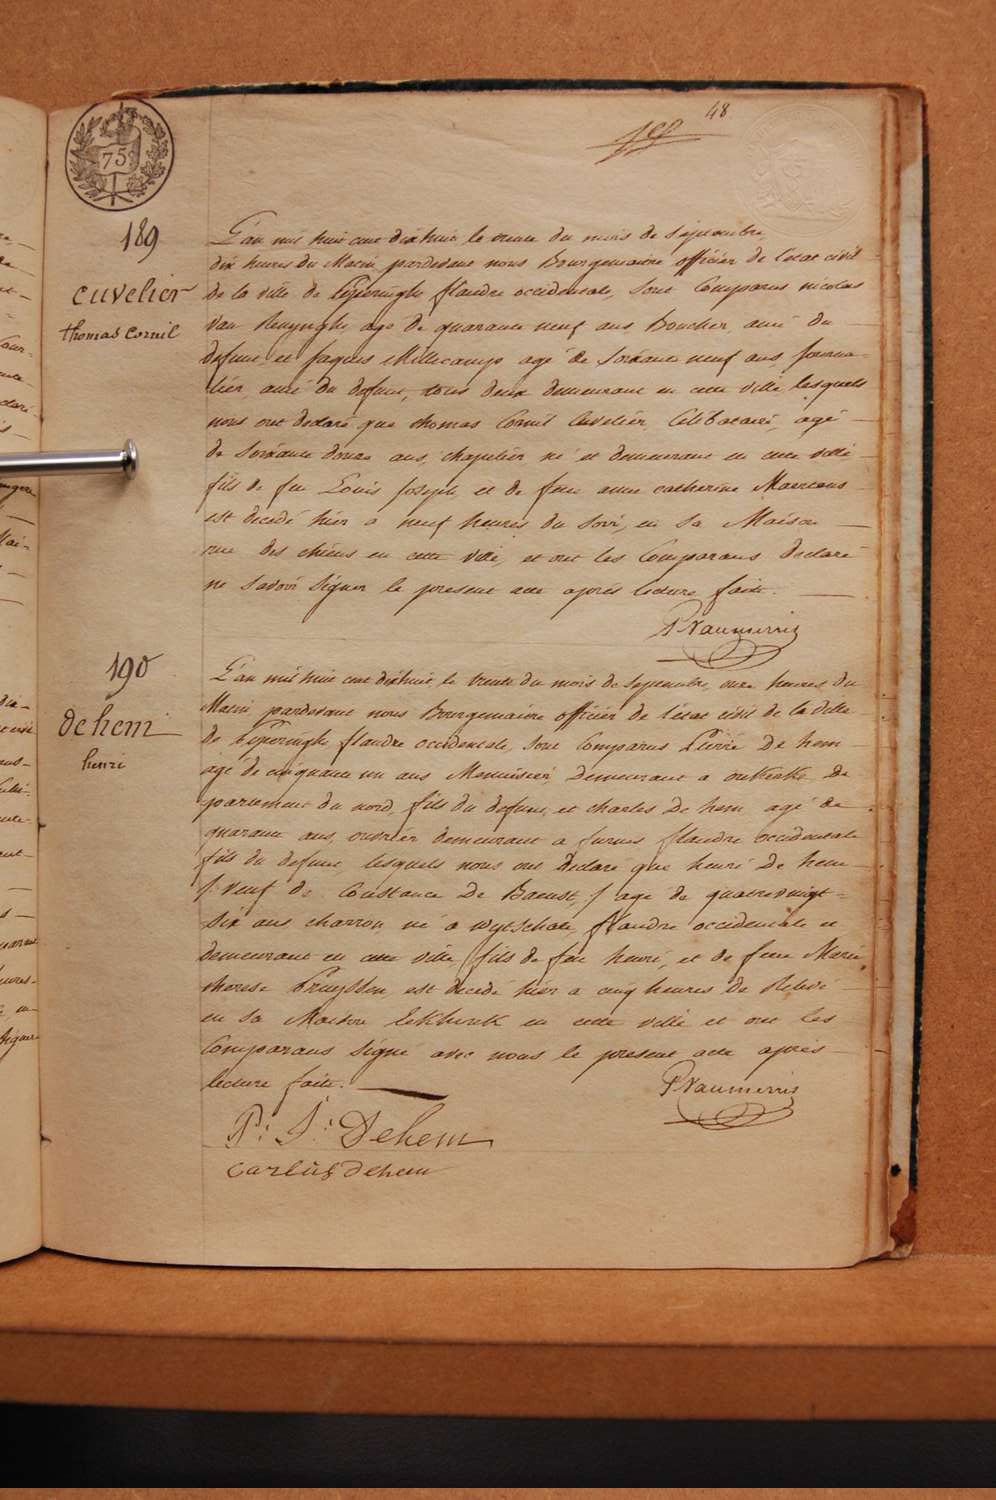 48
75
189
cuvelier
thomas cornil
L'an mil huit cent dixhuit, le trente du mois de Septembre,
dix heures du Matin pardevant nous Bourgemaitre officier de l'état civil
de la ville de Poperinghe flandre occidentale, sont Comparus nicolas
Van Renynghe agé de quarante neuf ans Boucher, ami du
defunt et Jaques Millecamps agé de Soixante neuf ans journa-
lier, ami du defunt, tous deux demeurant en cette ville, lesquels
nous ont declaré que thomas Cornil Cuvelier, Celibataire, agé
de Soixante douze ans, chapelier né et demeurant en cette ville
fils de feu Louis Joseph, et de feue anne catherine Maertens
est decedé hier a neuf heures du Soir, en Sa Maison
rue des chiens en cette ville, et ont les Comparans declaré
ne Savoir Signer le present acte après lecture faite.
PVanmerris
190
dehem
henri
L'an mil huit cent dixhuit, le trente du mois de Septembre, onze heures du
Matin pardevant nous Bourgemaitre officier de l'état civil de la ville
de Poperinghe flandre occidentale, sont Comparus Pierre De hem
agé de cinquante un ans Menuisier, Demeurant a De
partement du nord, fils du defunt, et charles De hem agé de
quarante ans, ouvrier demeurant a furnes flandre occidentale
fils du defunt, lesquels nous ont Declaré que henri De hem
/. Veuf de Constance De Baenst, / agé de quatrevingt
Six ans charron né a Wytschate, flandre occidentale et
demeurant en cette ville, fils de feu henri, et de feue Marie
therese est decedé hier a cinq heures de Relevé
en Sa Maison en cette ville et ont les
Comparans Signé avec nous le present acte après
lecture faite.
PVanmerris
P: J: Dehem
carlus dehem